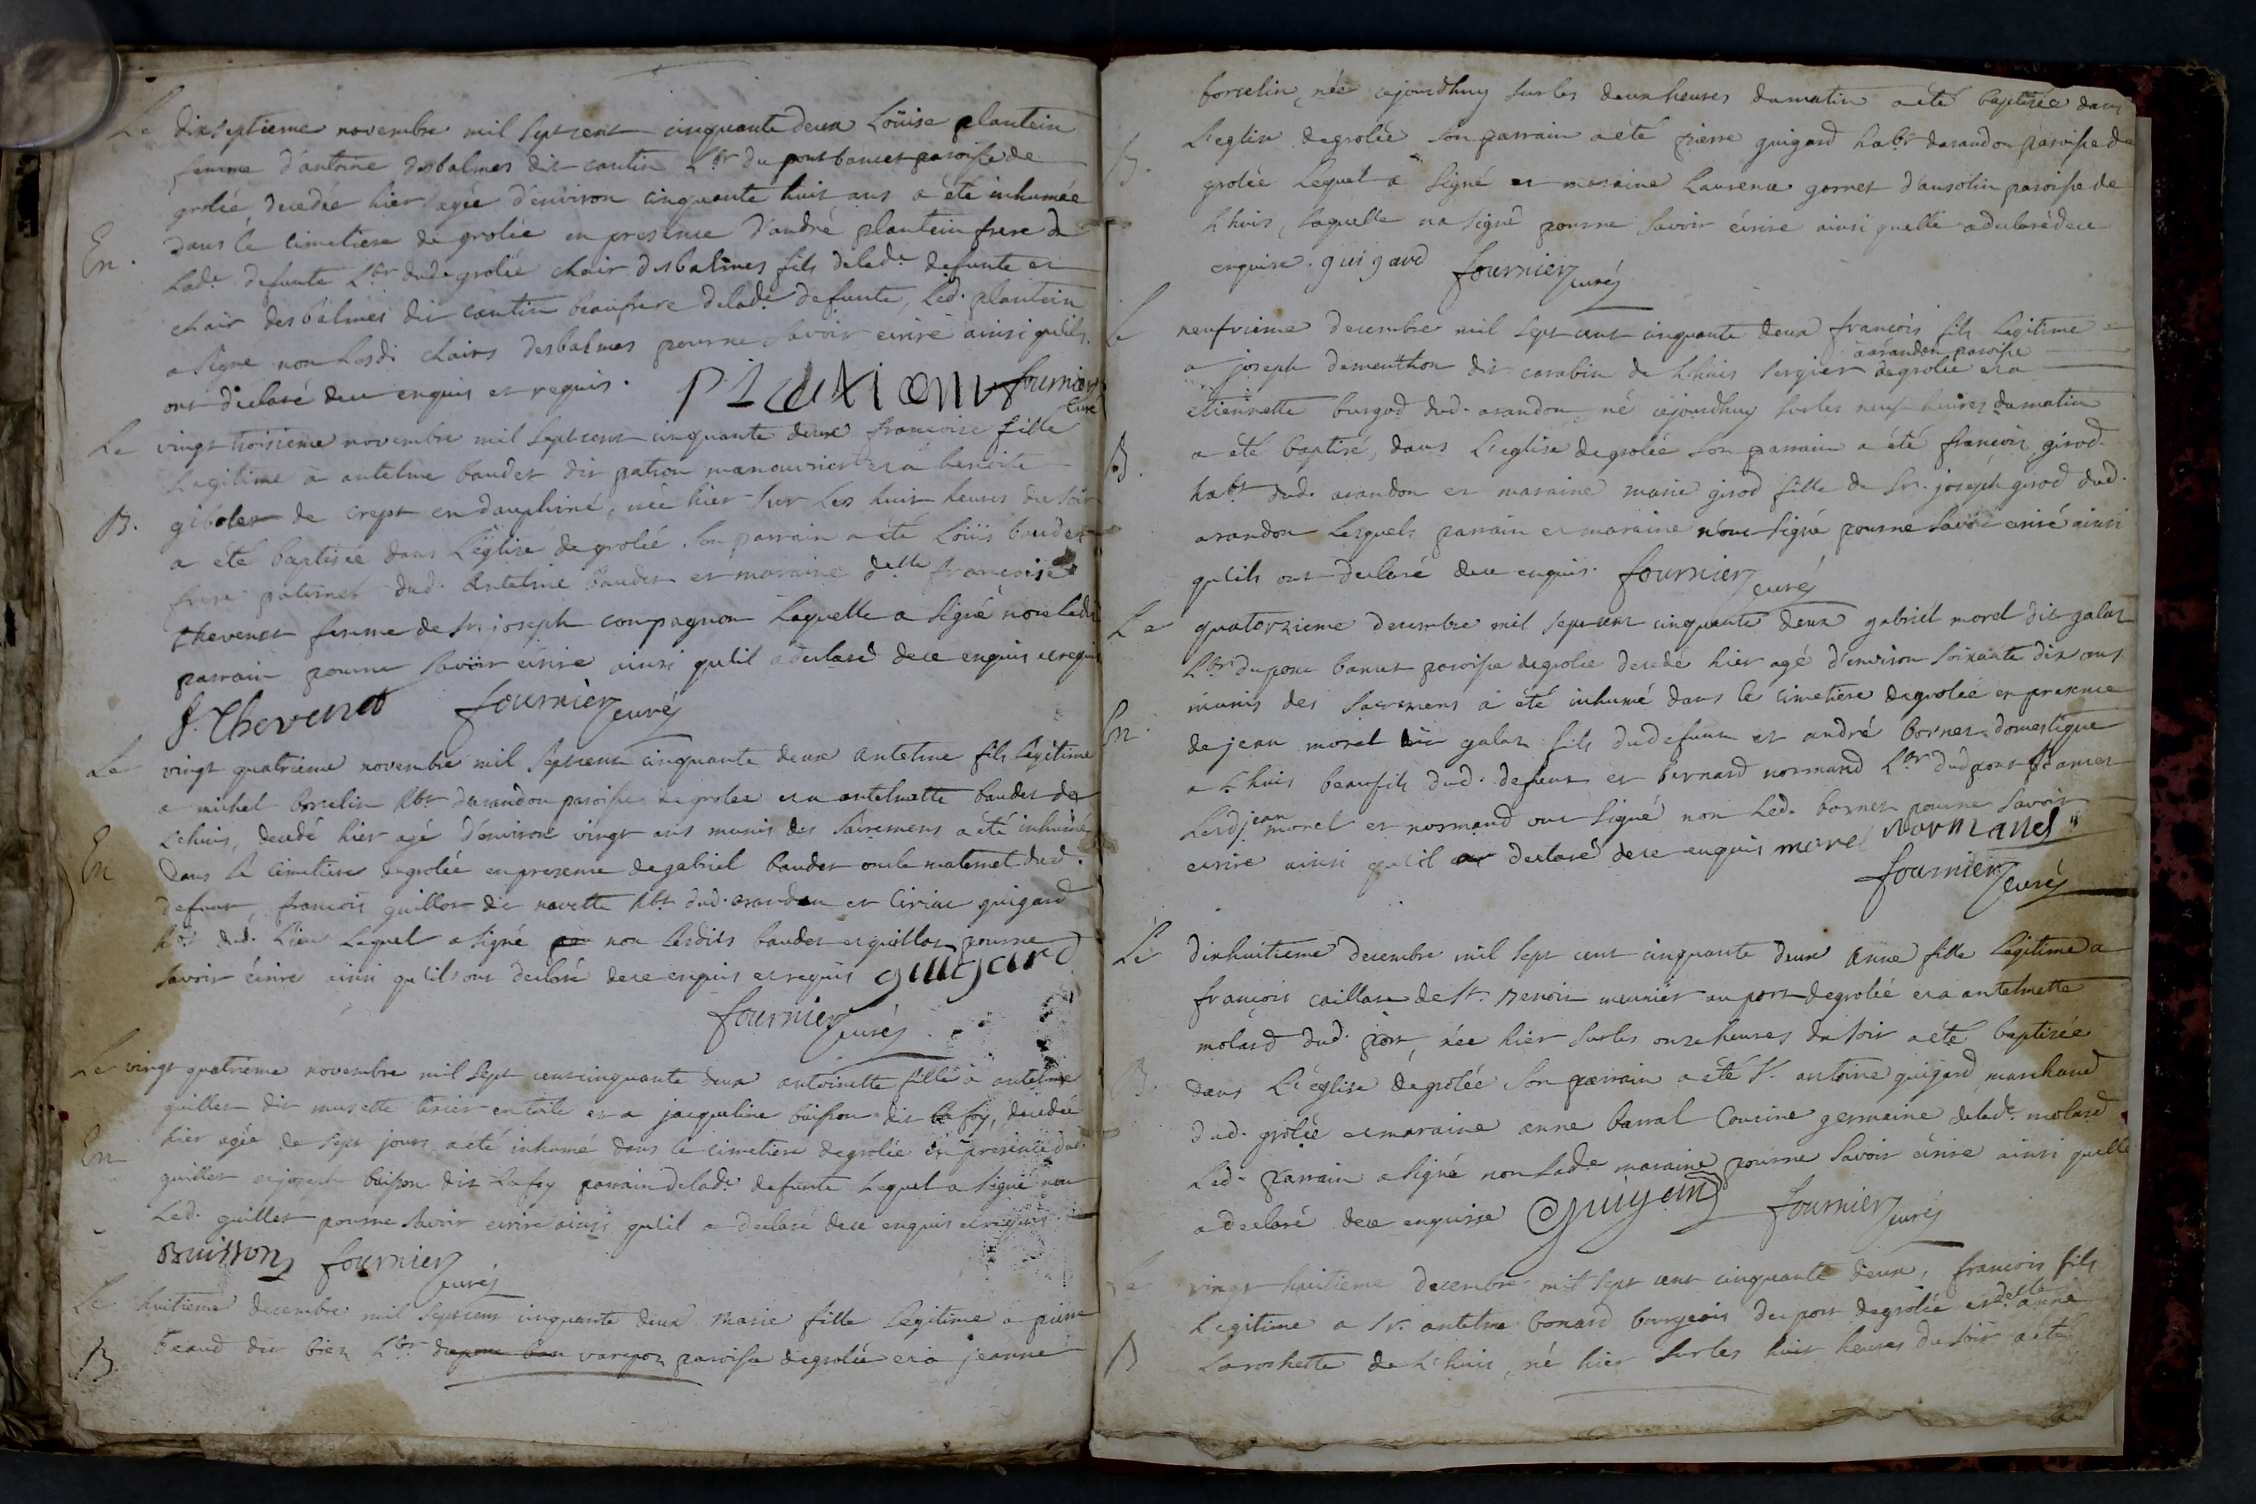 Le dixseptieme novembre mil sept cent cinquante deux Loüise plantein
femme d'antoine desbalmes dit cantin Lbr du pont bancet paroisse de
grolée, decedée hier agée d'environ cinquante huit ans a été inhumée
En. dans le cimetiere de grolée en presence d'andré plantein frere de
lade defunte Lbr dud. grolée chair desbalmes fils de lade defunte et
chair desbalmes dit cantin beaufrere de lade defunte, led. plantein
a signé non lesdi chairs desbalmes pour ne savoir écrire ainsi qu'ils
ont déclaré de ce enquis et requis. fournier
curé
Le vingt troisieme novembre mil sept cent cinquante deux francoise fille
Legitime a antelme baudet dit patron manouvrier et a benoite
B. de crept en dauphiné, née hier sur les huit heures du soir
a été baptisée dans L'église de grolée. son parrain a été Loüis baudet
frere paternel dud. antelme baudet et maraine delle francoise
thevenet femme de sr joseph compagnon laquelle a signé non led.
parrain pour ne savoir écrire ainsi qu'il a declaré de ce enquis et requis
f. thevenet fournier curé
Le vingt quatrieme novembre mil sept cent cinquante deux antelme fils legitime
a michel borcelin hbt darandon paroisse de grolée et a antelmette baudet de
L'huis, decedé hier agé d'environ vingt ans munis des sacremens a été inhumé
En dans le cimetiere de grolée en presence de gabriel baudet oncle maternel dud.
defunt, francois guillot dit navette hbt dud. arandon et Ciriac guigard
hbt dud. Lieu lequel a signé non lesdits baudet et guillot pour ne
savoir écrire ainsi qu'ils ont declaré de ce enquis et requis guigard
fournier curé
Le vingt quatrieme novembre mil sept cent cinquante deux antoinette fille a antelme
guillet dit musette tixier en toile et a jacqueline buisson dit lafoy, decedée
En hier agée de sept jours a été inhumé dans le cimetiere de grolée en presence dud.
guillet et joseph buisson dit Lafoy parrain de lade defunte lequel a signé non
Led. guillet pour ne savoir ecrire ainsi qu'il a declaré de ce enquis et requis.
Buisson fournier curé
Le huitieme decembre mil sept cent cinquante deux Marie fille Legitime a pierre
B. beaud dit biez Lbr du pont ban varepoz paroisse de grolée et a jeanne
borcelin, née cejourdhuy sur les deux heures du matin a été baptisée dans
B. L'eglise de grolée son parrain a été pierre guigard habt darandon paroisse de
grolée Lequel a signé et maraine Laurence gornet d'ansolin paroisse de
L'huis, laquelle n'a signé pour ne savoir écrire ainsi qu'elle a declaré de ce
enquise. guigard fournier curé
Le neufvieme decembre mil sept cent cinquante deux francois fils legitime
a joseph demeuthon dit carabin de L'huis bergier a arandon paroisse de grolée et a
etiennette burgod dud. arandon, né cejourdhuy sur les neuf heures du matin
B. a été baptisé, dans L'eglise de grolée son parrain a été francois girod
habt dud. arandon et maraine marie girod fille de sr. joseph girod dud.
arandon Lesquels parrain et maraine n'ont signé pour ne savoir écrire ainsi
qu'ils ont declaré de ce enquis. fournier curé
Le quatorzieme decembre mil sept cent cinquante deux gabriel morel dit galat
Lbr du pont bancet paroisse de grolée decedé hier agé d'environ soixante dix ans
munis des sacremens a été inhumé dans le cimetiere de grolée en presence
En. de jean morel dit galat fils du defunt et andré bornet domestique
a L'huis beaufils dud. defunt et bernard normand Lbr dud pont bancet
Lesd jean morel et normand ont signé non led. bornet pour ne savoir
ecrire ainsi qu'il a declaré de ce enquis morel Normand
fournier curé
Le dixhuitieme decembre mil sept cent cinquante deux Anne fille Legitime a
francois caillat de st. Benoit meunier au port de grolée et a antelmette
molard dud. port, née hier sur les onze heures du soir a été baptisée
B. dans L'église de grolée son parrain a été sr. antoine guigard marchand
dud. grolée et maraine anne barral Cousine germaine de lade molard
Led. parrain a signé non lade maraine pour ne savoir écrire ainsi qu'elle
a declaré de ce enquise Guigard fournier curé
Le vingt huitieme decembre mil sept cent cinquante deux, francois fils
Legitime a sr. antelme bonard bourgeois du port de grolée et delle anne
B Larochette de L'huis, né hier sur les huit heures du soir a été